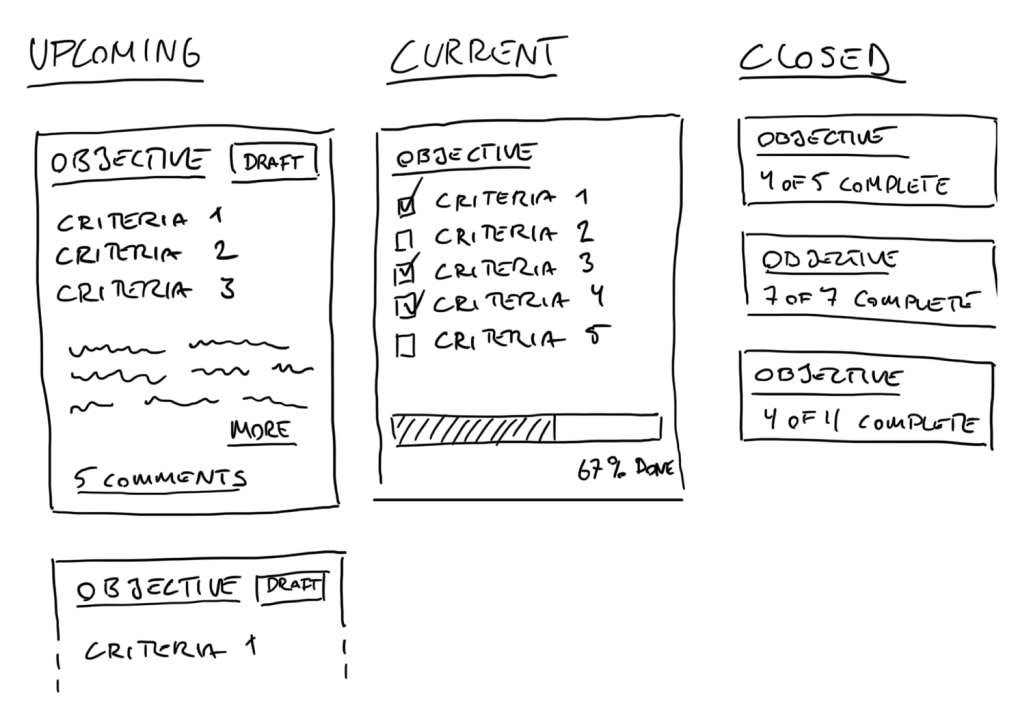 UPCOMING
OBJECTIVE DRAFT
CRITERIA 1
CRITERIA 2
CRITERIA 3
MORE
5 COMMENTS
OBJECTIVE DRAFT
CRITERIA 1
CURRENT
OBJECTIVE
CRITERIA 1
CRITERIA 2
CRITERIA 3
CRITERIA 4
CRITERIA 5
67% DONE
CLOSED
OBJECTIVE
4 OF 5 COMPLETE
OBJECTIVE
7 OF 7 COMPLETE
OBJECTIVE
4 OF 11 COMPLETE